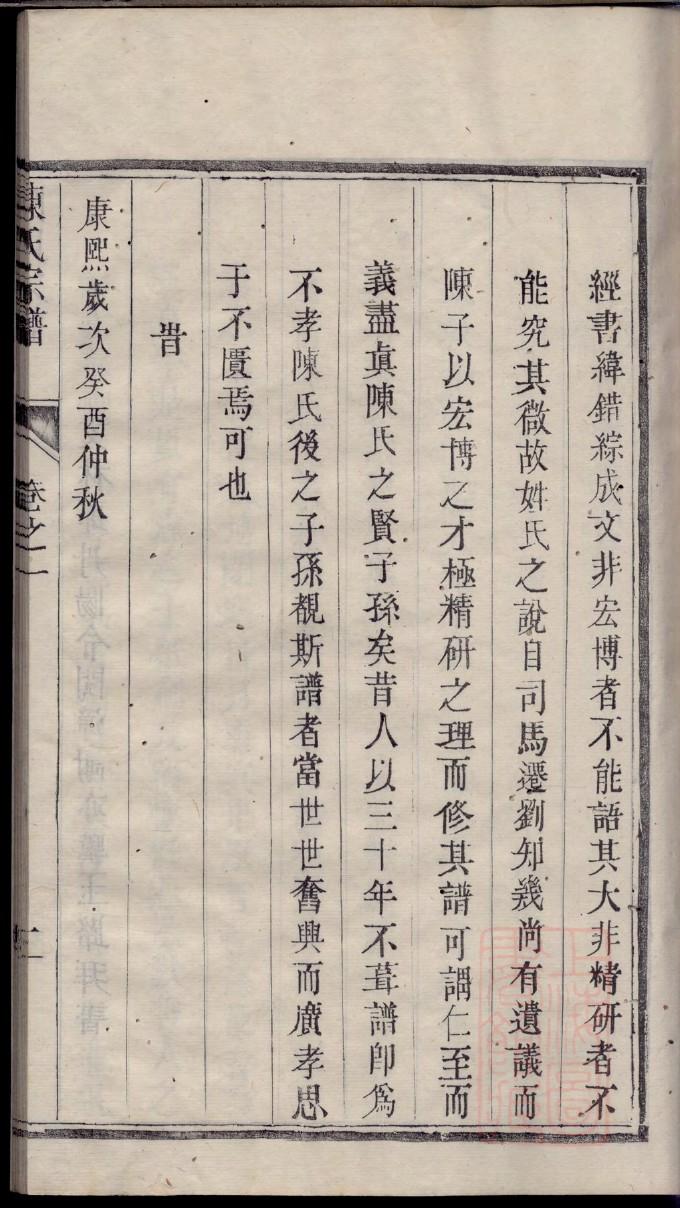 經書緯錯綜成文非宏博者不能語其大非精研者不
能究其微故姓氏之說自司馬遷劉知幾尚有遺議而
陳子以宏博之才極精研之理而修其譜可謂仁至而
義盡眞陳氏之賢子孫矣昔人以三十年不葺譜卽爲
不孝陳氏後之子孫覩斯譜者當世世奮興而廣孝思
于不匱焉可也
旹
康熙歲次癸酉仲秋
陳氏宗譜
卷之一
二